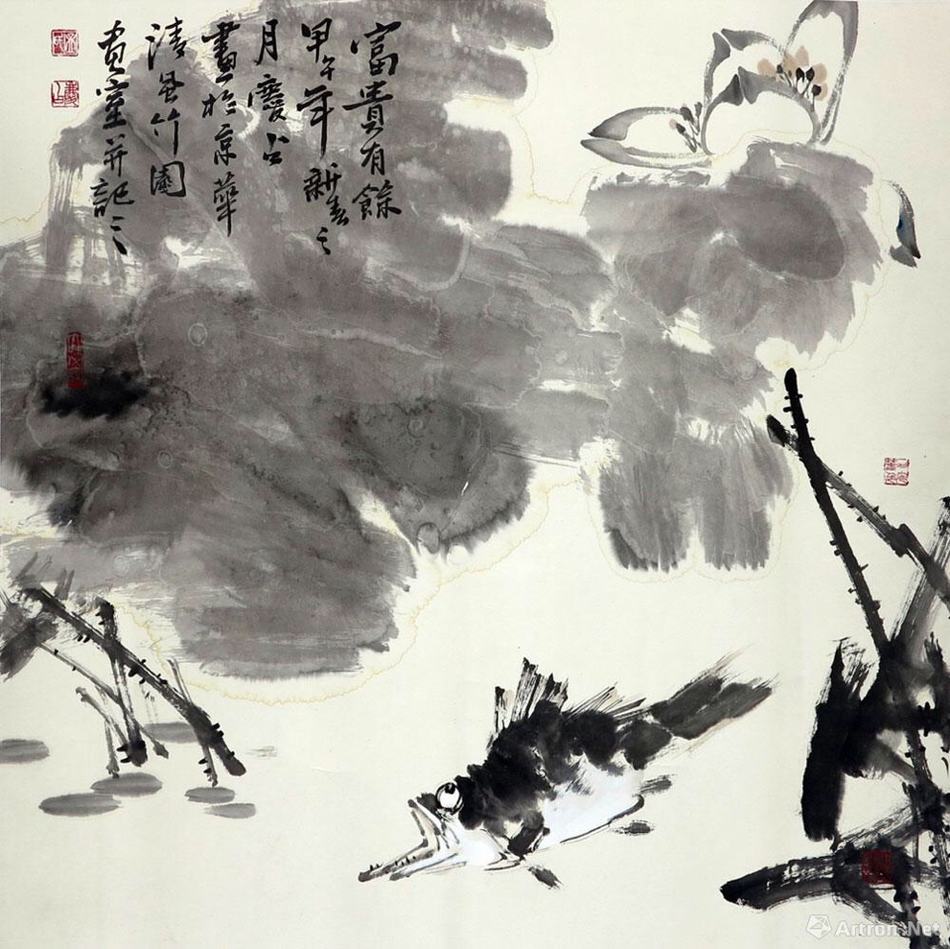 富貴有餘
甲午年新春之
月慶占
畫於京華
清風竹園
畫室并記之
Artron.Net